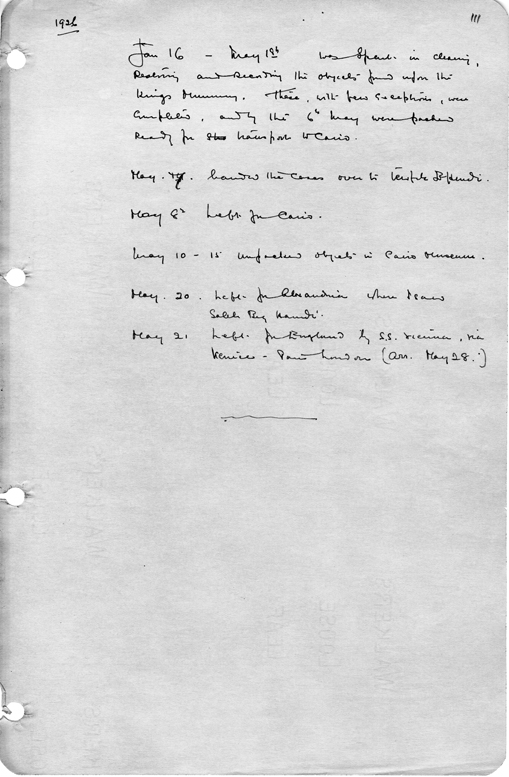 1926
111
Jan 16 - May 1st was spent in cleaning,
restoring and recording the objects found upon the
King's Mummy. These, with few exceptions, were
completed, and by the 6th May were packed
ready for transport to Cairo.
May. 7. handed the cases over to Tewfik Effendi.
May 8th Left for Cairo.
May 10 - 15 unpacked objects in Cairo Museum.
May. 20. Left for Alexandria where I saw
Saleh Bey Hamdi.
May 21 Left for England by S.S. Vienna, via
Venice - Paris London (Arr. May 28.)